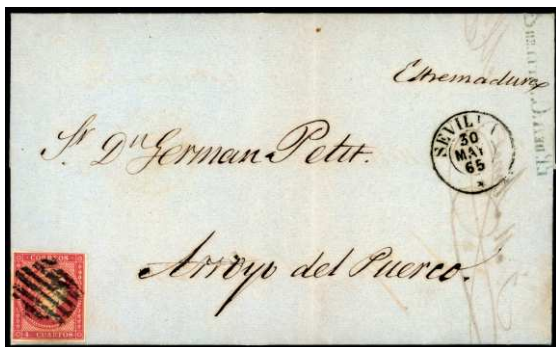 Estremadura
SEVILLA
30
MAY
65
Sr. Dn German Petit.
Arroyo del Puerco.
CUARTOS